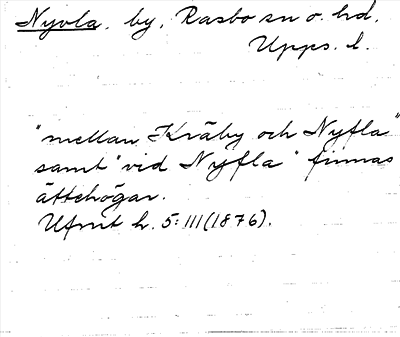 Nyvla, by, Rasbo sn o. hd,
Upps. l.
"mellan Kräby och Nyfla"
samt "vid Nyfla" finnas
ättehögar.
Ufmt h. 5:111 (1876).